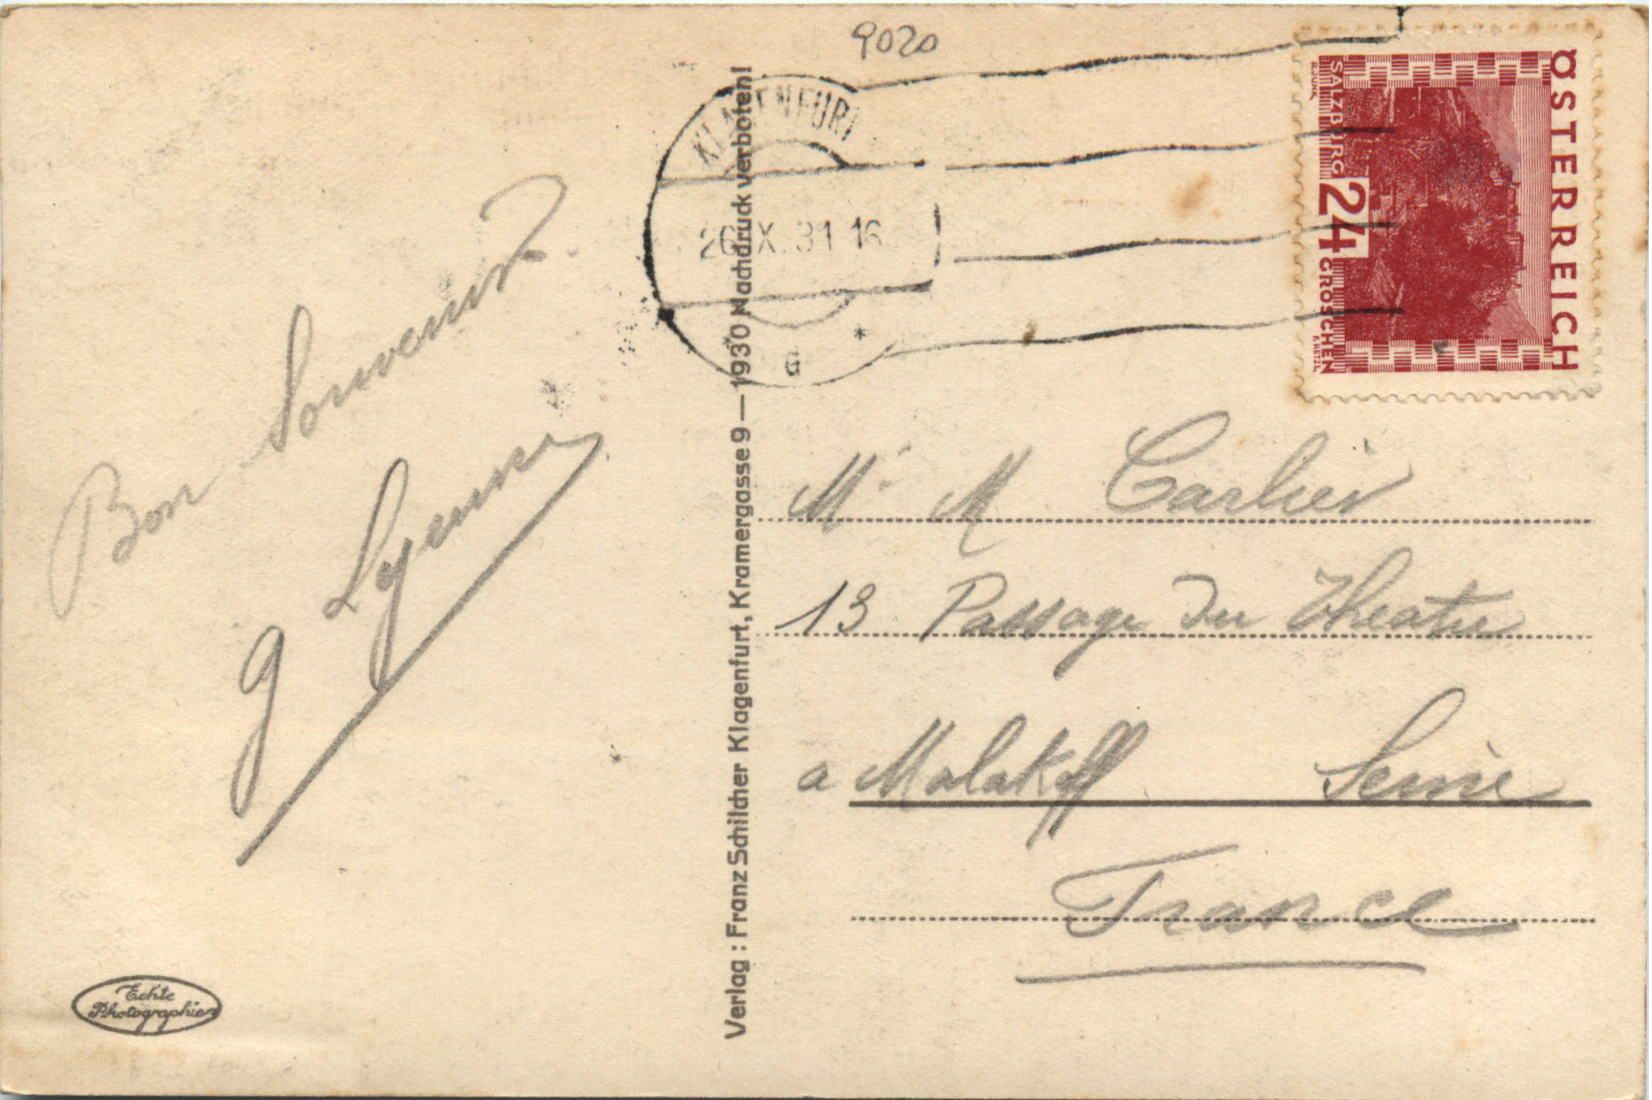 9020
KLAGENFURT
26.IX.31 16
G
*
ÖSTERREICH
SALZBURG
24 GROSCHEN
Bon Souvenir
Verlag : Franz Schilcher Klagenfurt, Kramergasse 9 — 1930 Nachdruck verboten!
Mr M Carlier
13 Passage Du Theatre
a Malakoff Seine
France
Echte
Photographie